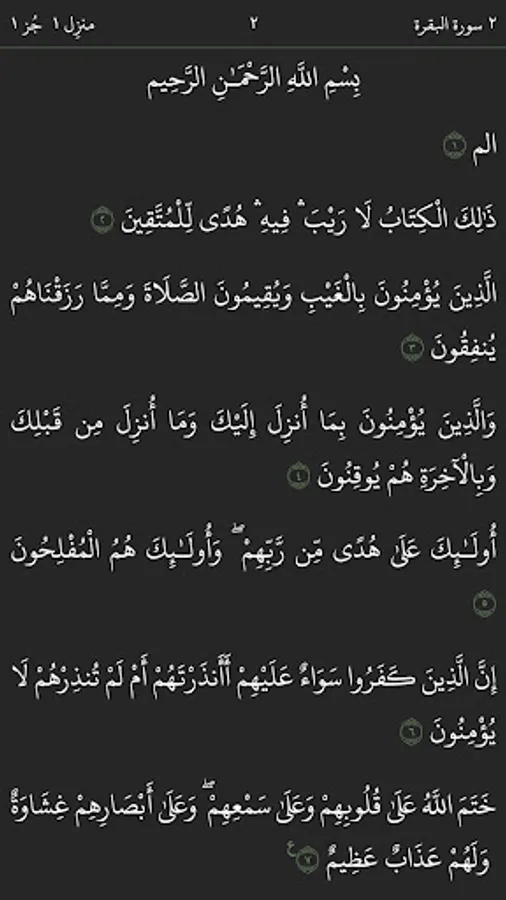 ٢ سورة البقرة ٢ منزل ١ جُز ١
بِسْمِ اللَّهِ الرَّحْمَـٰنِ الرَّحِيمِ
الم ١
ذَٰلِكَ الْكِتَابُ لَا رَيْبَ ۛ فِيهِ ۛ هُدًى لِّلْمُتَّقِينَ ٢
الَّذِينَ يُؤْمِنُونَ بِالْغَيْبِ وَيُقِيمُونَ الصَّلَاةَ وَمِمَّا رَزَقْنَاهُمْ
يُنفِقُونَ ٣
وَالَّذِينَ يُؤْمِنُونَ بِمَا أُنزِلَ إِلَيْكَ وَمَا أُنزِلَ مِن قَبْلِكَ
وَبِالْآخِرَةِ هُمْ يُوقِنُونَ ٤
أُولَـٰئِكَ عَلَىٰ هُدًى مِّن رَّبِّهِمْ ۖ وَأُولَـٰئِكَ هُمُ الْمُفْلِحُونَ
٥
إِنَّ الَّذِينَ كَفَرُوا سَوَاءٌ عَلَيْهِمْ أَأَنذَرْتَهُمْ أَمْ لَمْ تُنذِرْهُمْ لَا
يُؤْمِنُونَ ٦
خَتَمَ اللَّهُ عَلَىٰ قُلُوبِهِمْ وَعَلَىٰ سَمْعِهِمْ ۖ وَعَلَىٰ أَبْصَارِهِمْ غِشَاوَةٌ
وَلَهُمْ عَذَابٌ عَظِيمٌ ٧ ع